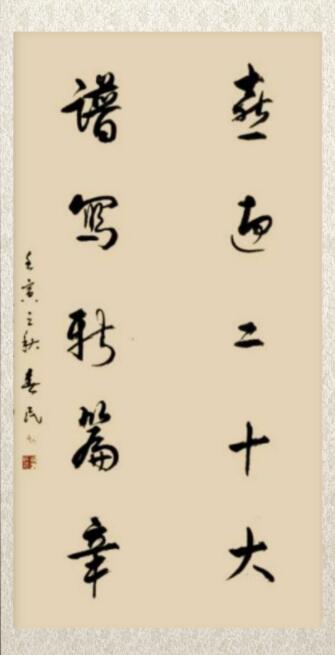 喜迎二十大
谱写新篇章
壬寅之秋 春民